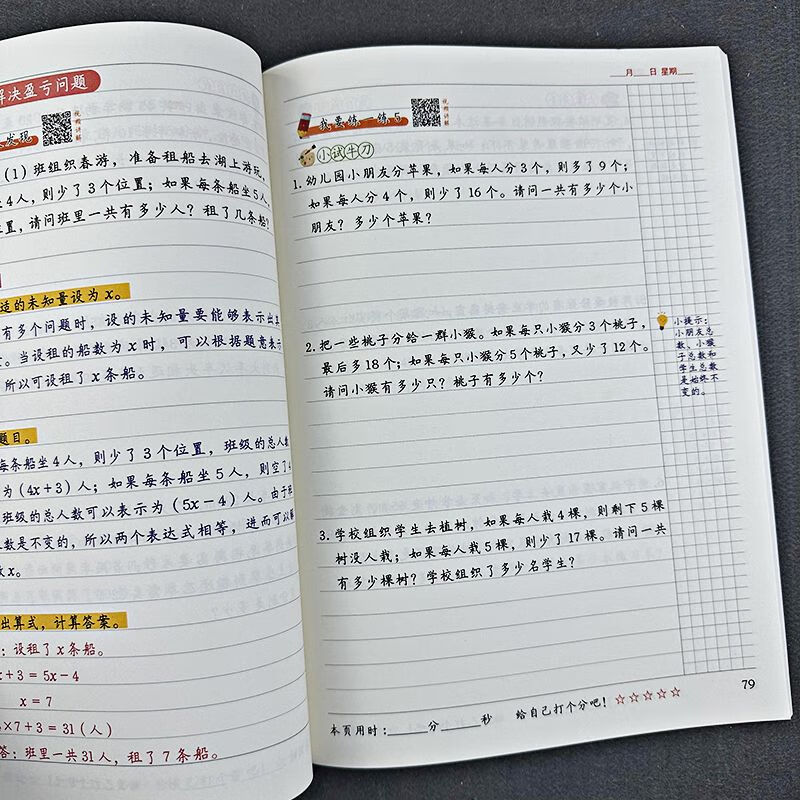 解决盈亏问题
发现
视频讲解
(1)班组织春游,准备租船去湖上游玩,
4人,则少了3个位置;如果每条船坐5人,
置,请问班里一共有多少人?租了几条船?
适的未知量设为x。
有多个问题时,设的未知量要能够表示出其
。当设租的船数为x时,可以根据题意表示
所以可设租了x条船。
题目。
每条船坐4人,则少了3个位置,班级的总人数
为(4x+3)人;如果每条船坐5人,则空了4
班级的总人数可以表示为(5x-4)人。由于班
数是不变的,所以两个表达式相等,进而可以
数x。
出算式,计算答案。
:设租了x条船。
x+3=5x-4
x=7
×7+3=31(人)
答:班里一共31人,租了7条船。
月 日 星期
我要练一练5
视频讲解
小试牛刀
1. 幼儿园小朋友分苹果,如果每人分3个,则多了9个;
如果每人分4个,则少了16个。请问一共有多少个小
朋友?多少个苹果?
2. 把一些桃子分给一群小猴。如果每只小猴分3个桃子,
最后多18个;如果每只小猴分5个桃子,又少了12个。
请问小猴有多少只?桃子有多少个?
小提示:
小朋友总
数、小猴
子总数和
学生总数
是始终不
变的。
3. 学校组织学生去植树,如果每人栽4棵,则剩下5棵
树没人栽;如果每人栽5棵,则少了17棵。请问一共
有多少棵树?学校组织了多少名学生?
79
本页用时:____分____秒 给自己打个分吧!☆☆☆☆☆